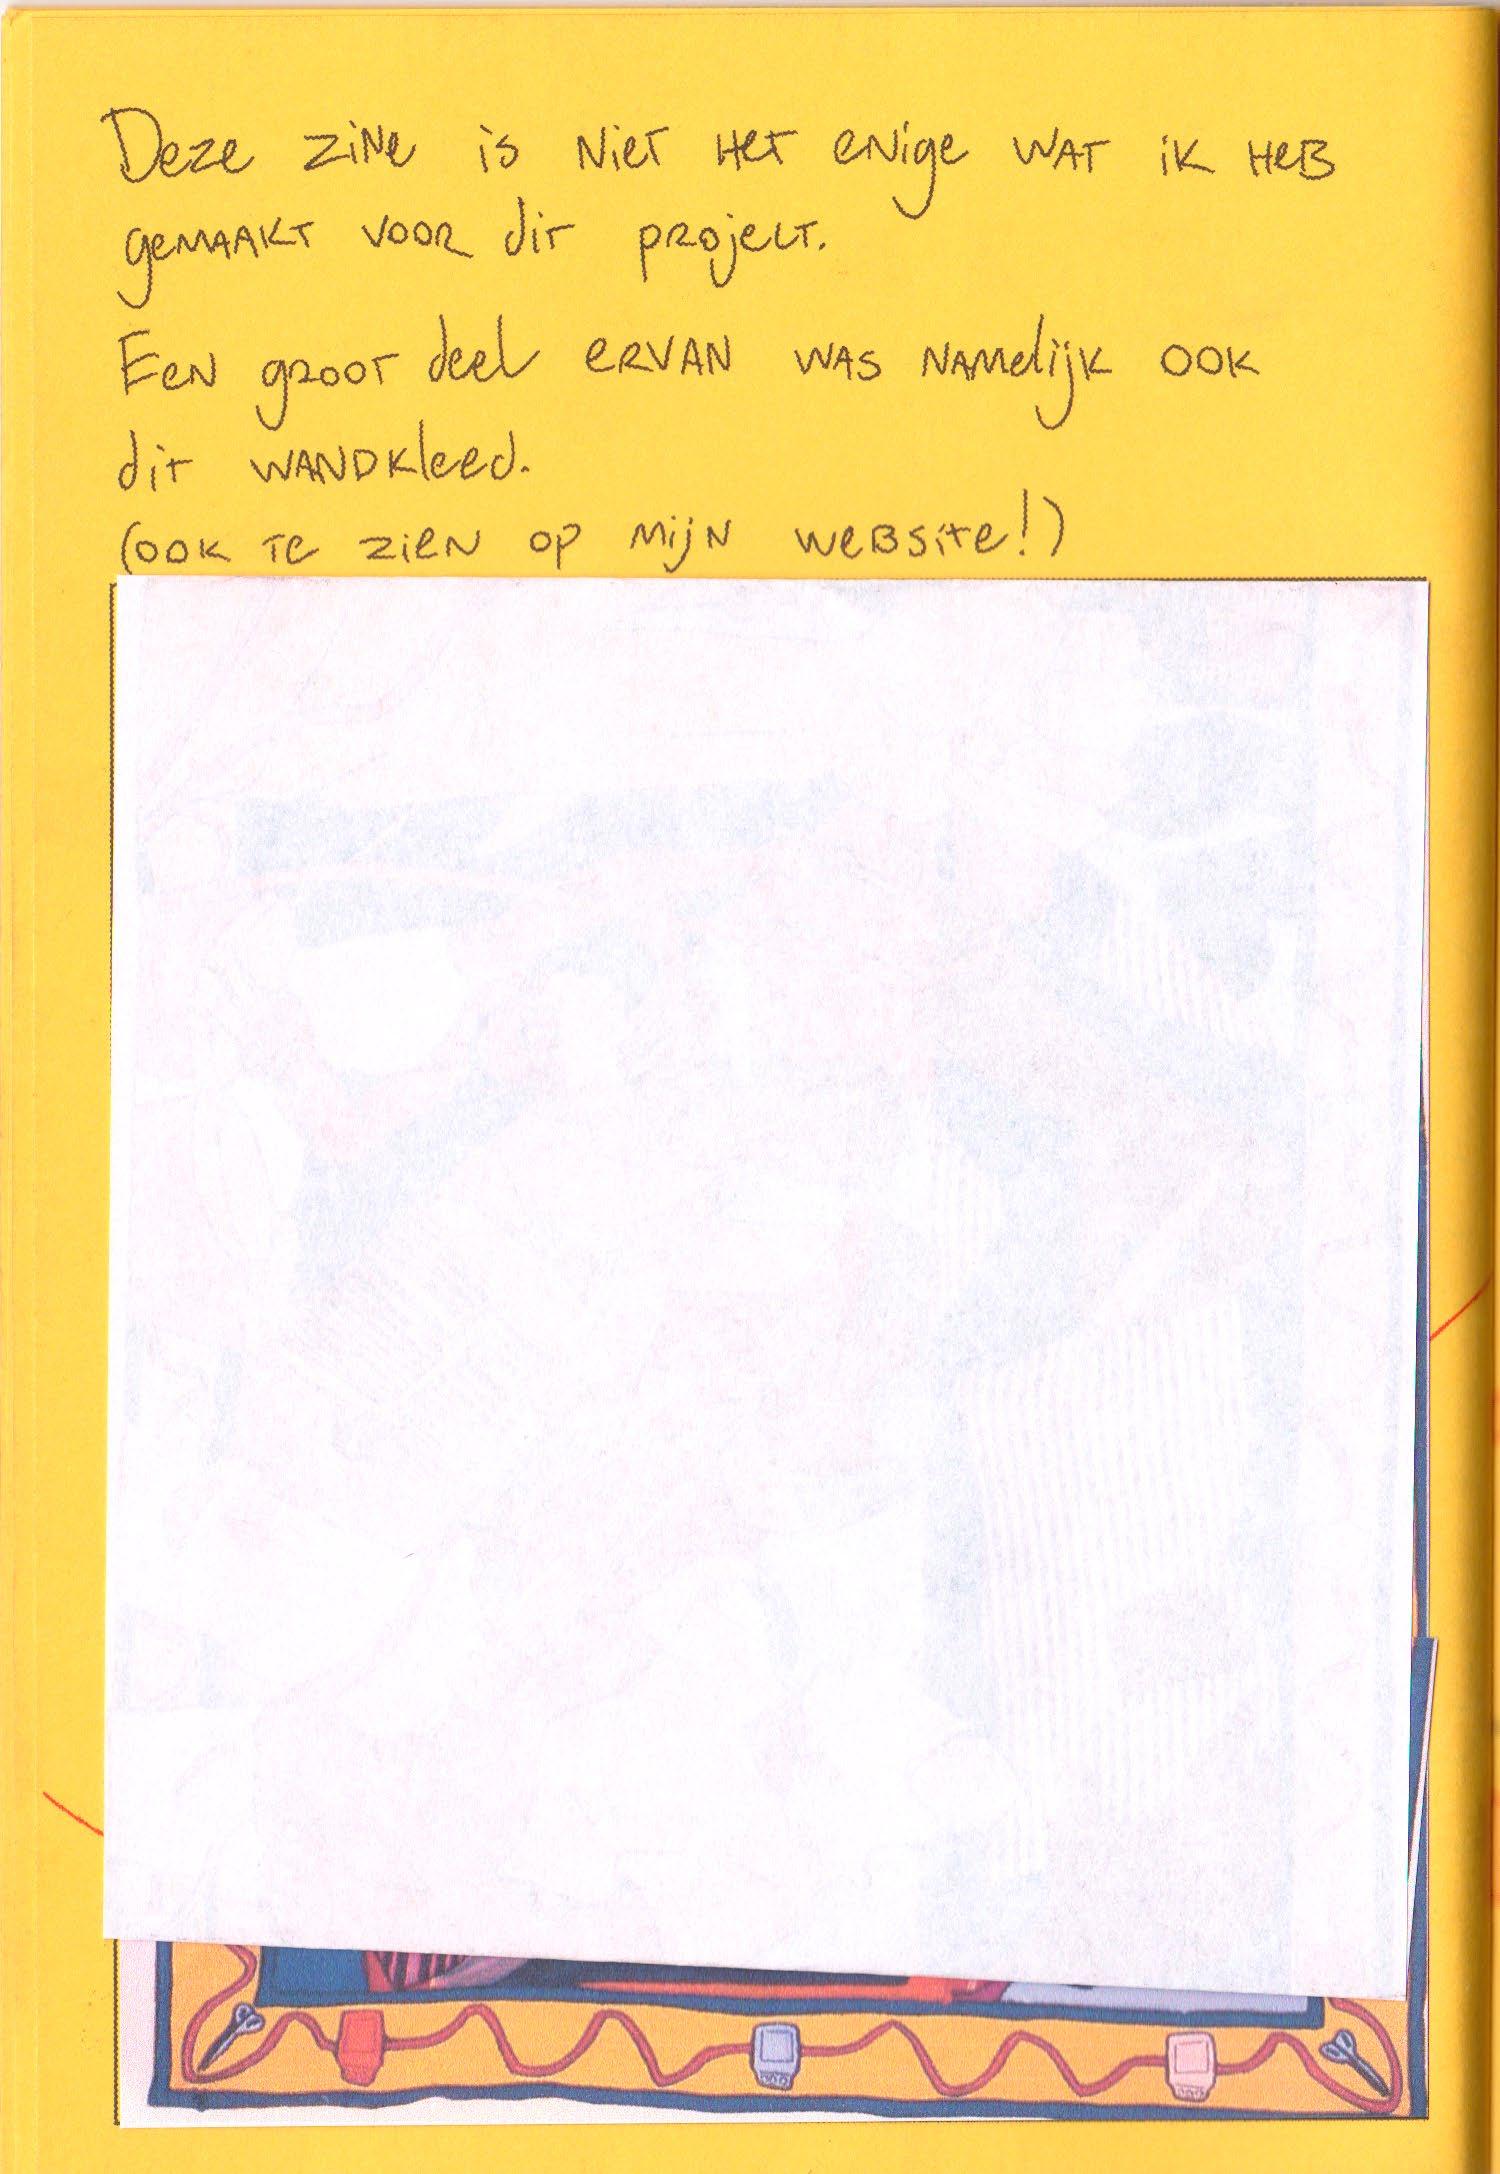 Deze zine is niet het enige wat ik heb
gemaakt voor dit project.
Een groot deel ervan was namelijk ook
dit wandkleed.
(ook te zien op mijn website!)